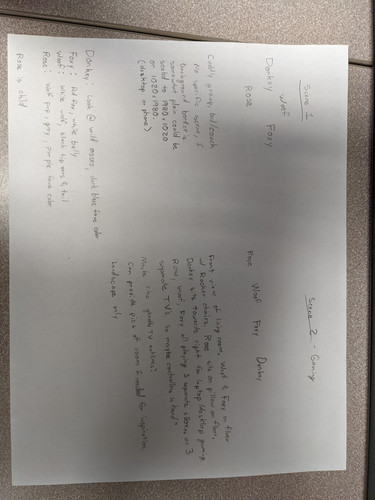 Scene 1
Woof
Donkey Foxy
Rose
Cuddly group, bed/couch
No specific scene, if
background border is
somewhat plain could be
scaled to 1920x1020
or 1020x1920
(desktop or phone)
Donkey: look @ wild asses, dark blue fave color
Foxy: Red fox, white belly
Woof: white wolf, black tip ears & tail
Rose: wolf pup, gray, purple fave color
Rose is child
Scene 2 - Gaming
Rose Woof Foxy Donkey
Front view of living room. Woof & Foxy in floor
Rocker chairs, Rose sits on pillow on floor,
Donkey sits towards right for laptop/desktop gaming
Rose, Woof, Foxy all playing 3 separate xboxes on 3
separate TV's. So maybe controllers in hand
Maybe like ghosted TV outlines?
Can provide pics of room if needed for inspiration
Landscape only